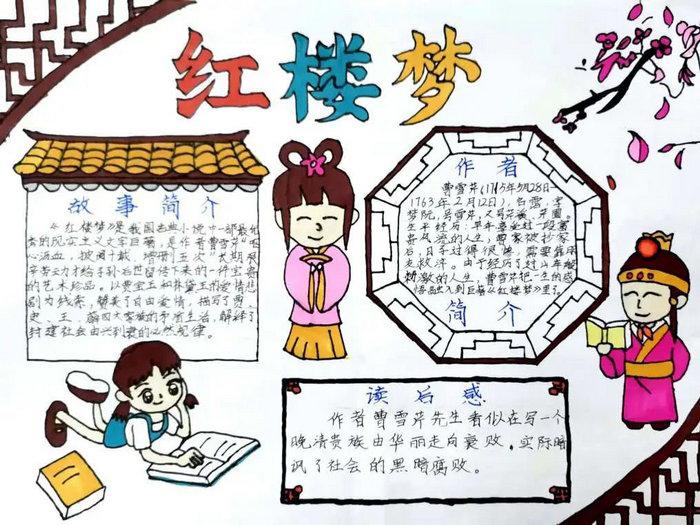 红楼梦
故事简介
《红楼梦》是我国古典小说中一部最优
秀的现实主义文学巨著，是作者曹雪芹“呕
心沥血，披阅十载，增删五次”，长期艰
辛劳动才给予到后世留传下来的一件宝贵
的艺术珍品。以贾宝玉和林黛玉的爱情悲
剧为线索，赞美了自由爱情，描写了贾、
史、王、薛四大家族的矛盾生活，解释了
封建社会由兴到衰的必然规律。
作者
曹雪芹(1715年5月28日-
1763年2月12日)，名霑，字
梦阮，号雪芹，又号芹溪、芹圃。
生平经历：早年
的人生，曹家被抄家
后，日子过得很
由于经历了
的人生，曹雪芹把一生的感
悟融入到巨著《红楼梦》里了。
简介
读后感
作者曹雪芹先生看似在写一个
晚清贵族由华丽走向衰败，实际暗
讽了社会的黑暗腐败。